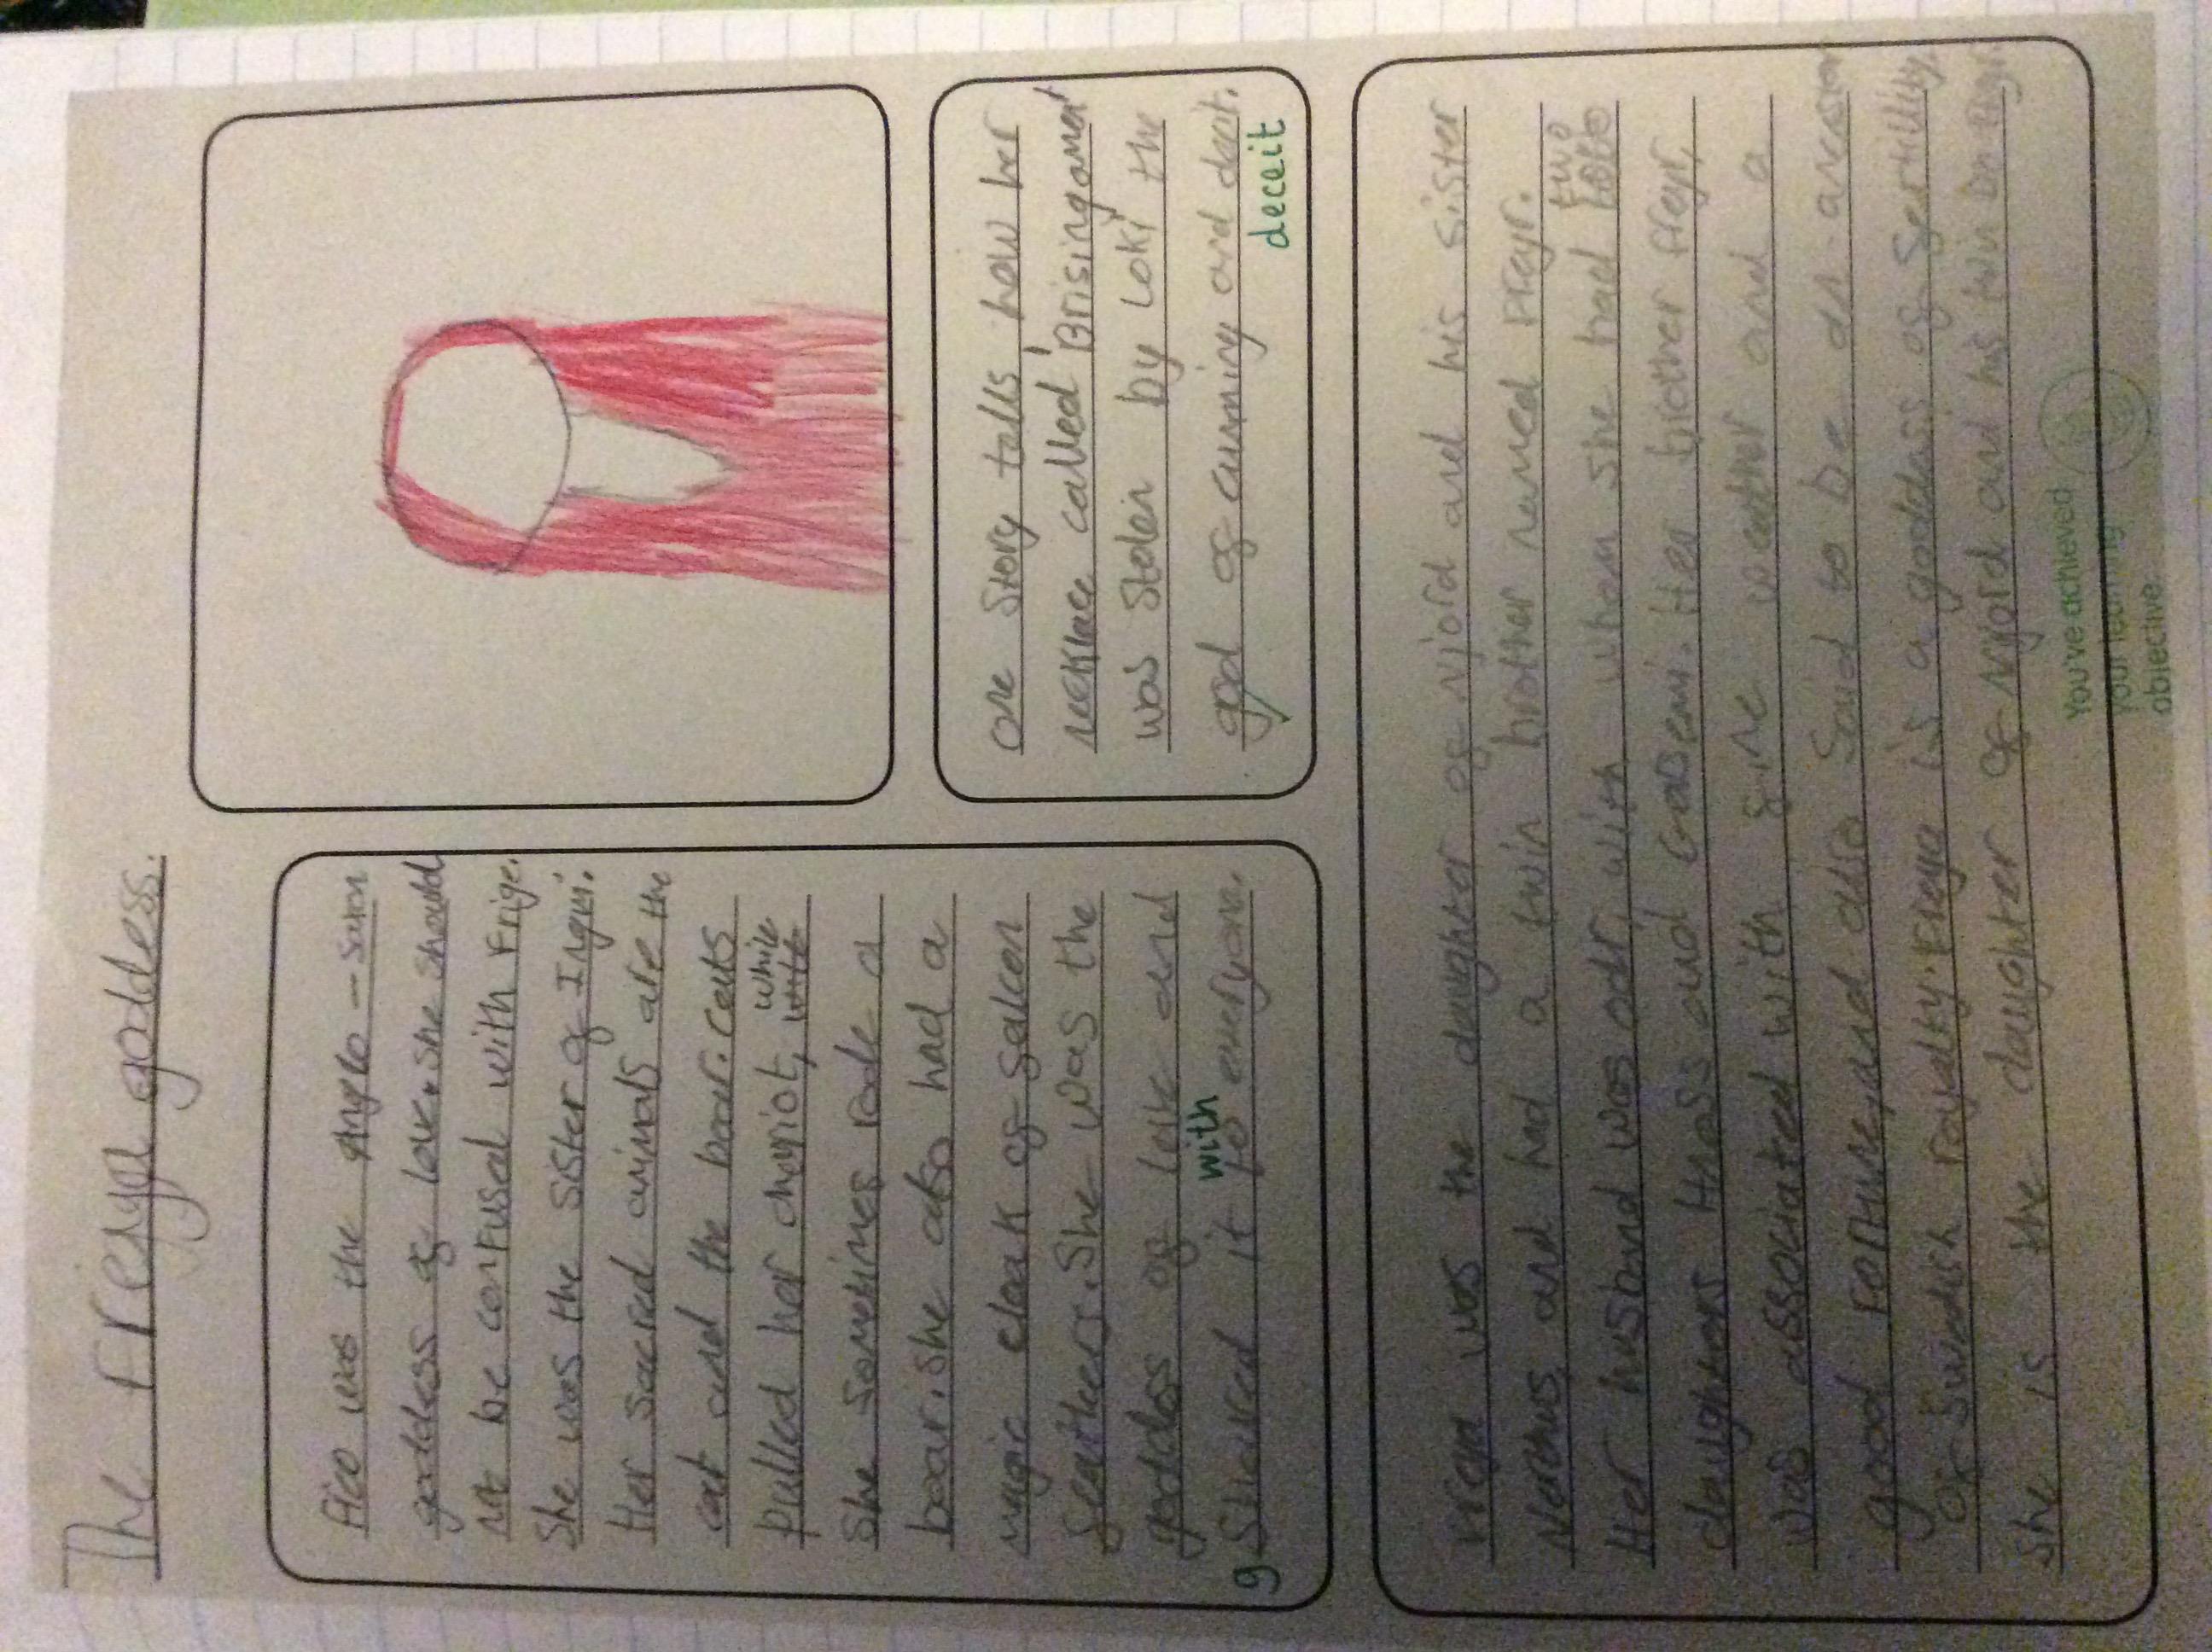 The Freya goddess.
Frea was the Anglo - saxon
goddess of love. She should
not be confused with Frige.
She was the sister of Ingui.
Her sacred animals are the
cat and the boar. Cats
pulled her chariot, while
She sometimes rode a
boar. she also had a
magic cloak of falcen
feathers. She was the
goddess of love and
with
g Shared it to everyone.
one story talls how her
necklace called Brisingamen
was Stolen by Loki the
god of cunning and
deceit
Freya was the daughter of Njord and his sister
Nerthus, and had a twin brother named Freyr.
two
Her husband was odr, with whom she had
daughters Hnoss and Gersemi. Her brother Freyr,
was associated with fine weather and a
good Fortune, and also Said to be an ancestor
of Swedish royalty. Freya is a goddess of fertility,
She is the daughter of Njord and his twin
You've achieved
your learning
objective.